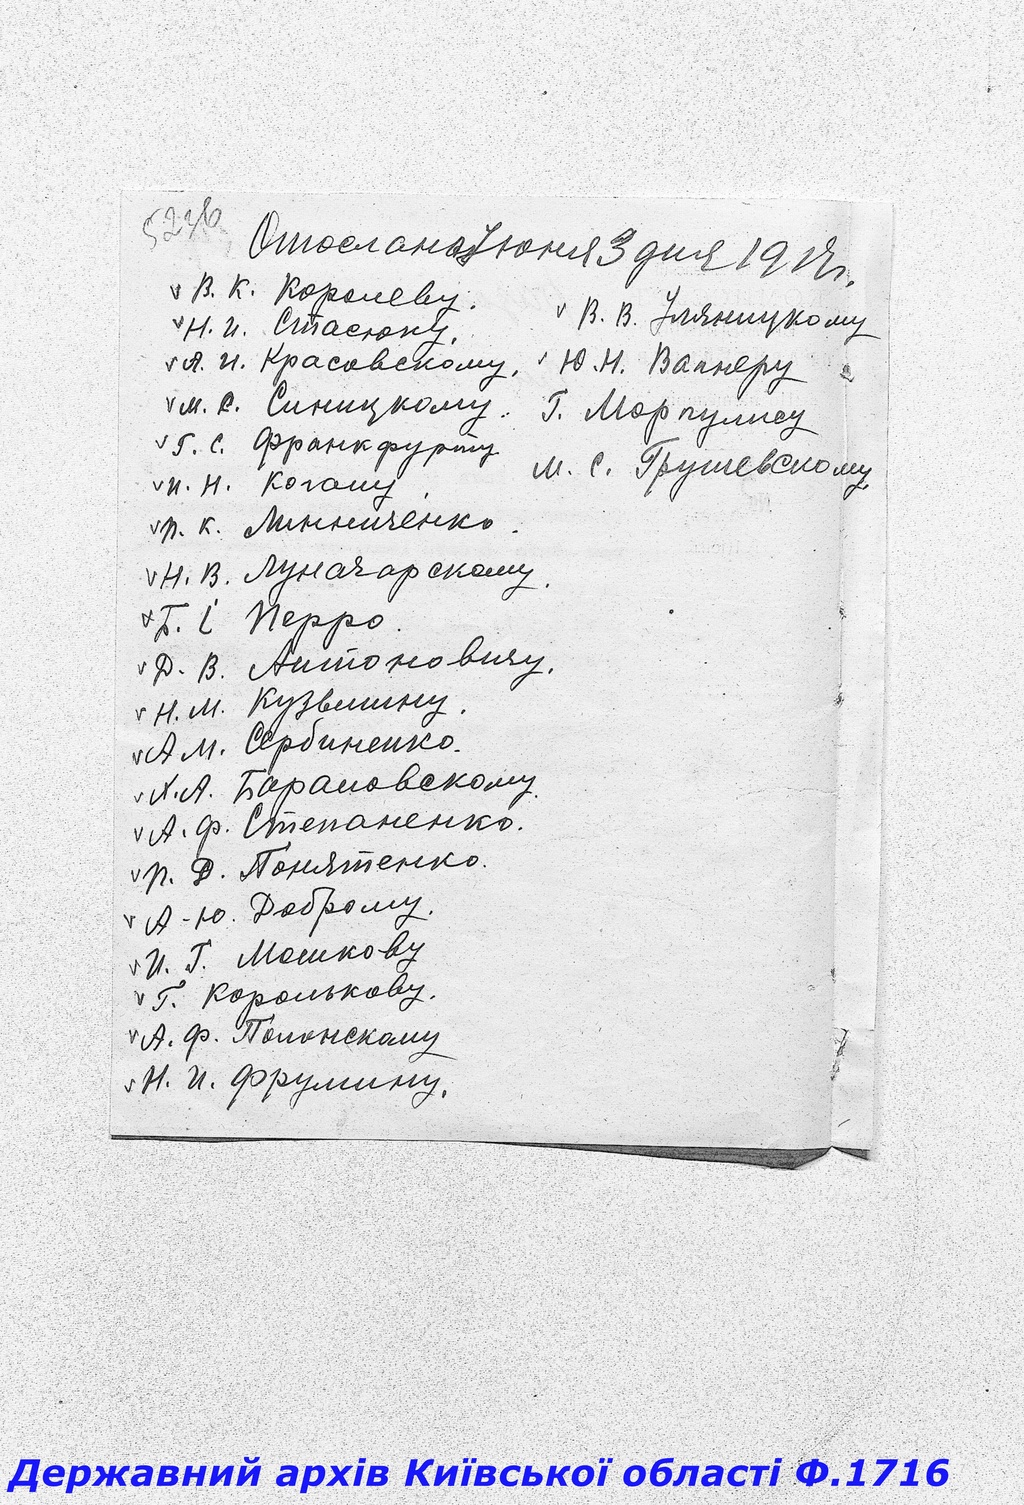 Отослано Июня 3 дня 1917 г.
В. К. Королеву.
Н. И. Стасюку.
А. И. Красовскому.
М. С. Синицкому.
Г. С. Франкфурту
И. Н. Когану.
П. К. Линниченко.
Н. В. Луначарскому.
Б. І Перро.
Д. В. Антоновичу.
Н. М. Кузьмину.
А М. Сербиненко.
Х. А. Барановскому.
А. Ф. Степаненко.
П. Д. Понятенко.
А-Ю. Доброму.
И. Г. Машкову
Г. Королькову.
А. Ф. Полонскому
Н. И. Фрумину.
В. В. Уляницкому
Ю. Н. Вагнеру
Г. Моргулису
М. С. Грушевскому.
Державний архів Київської області Ф.1716